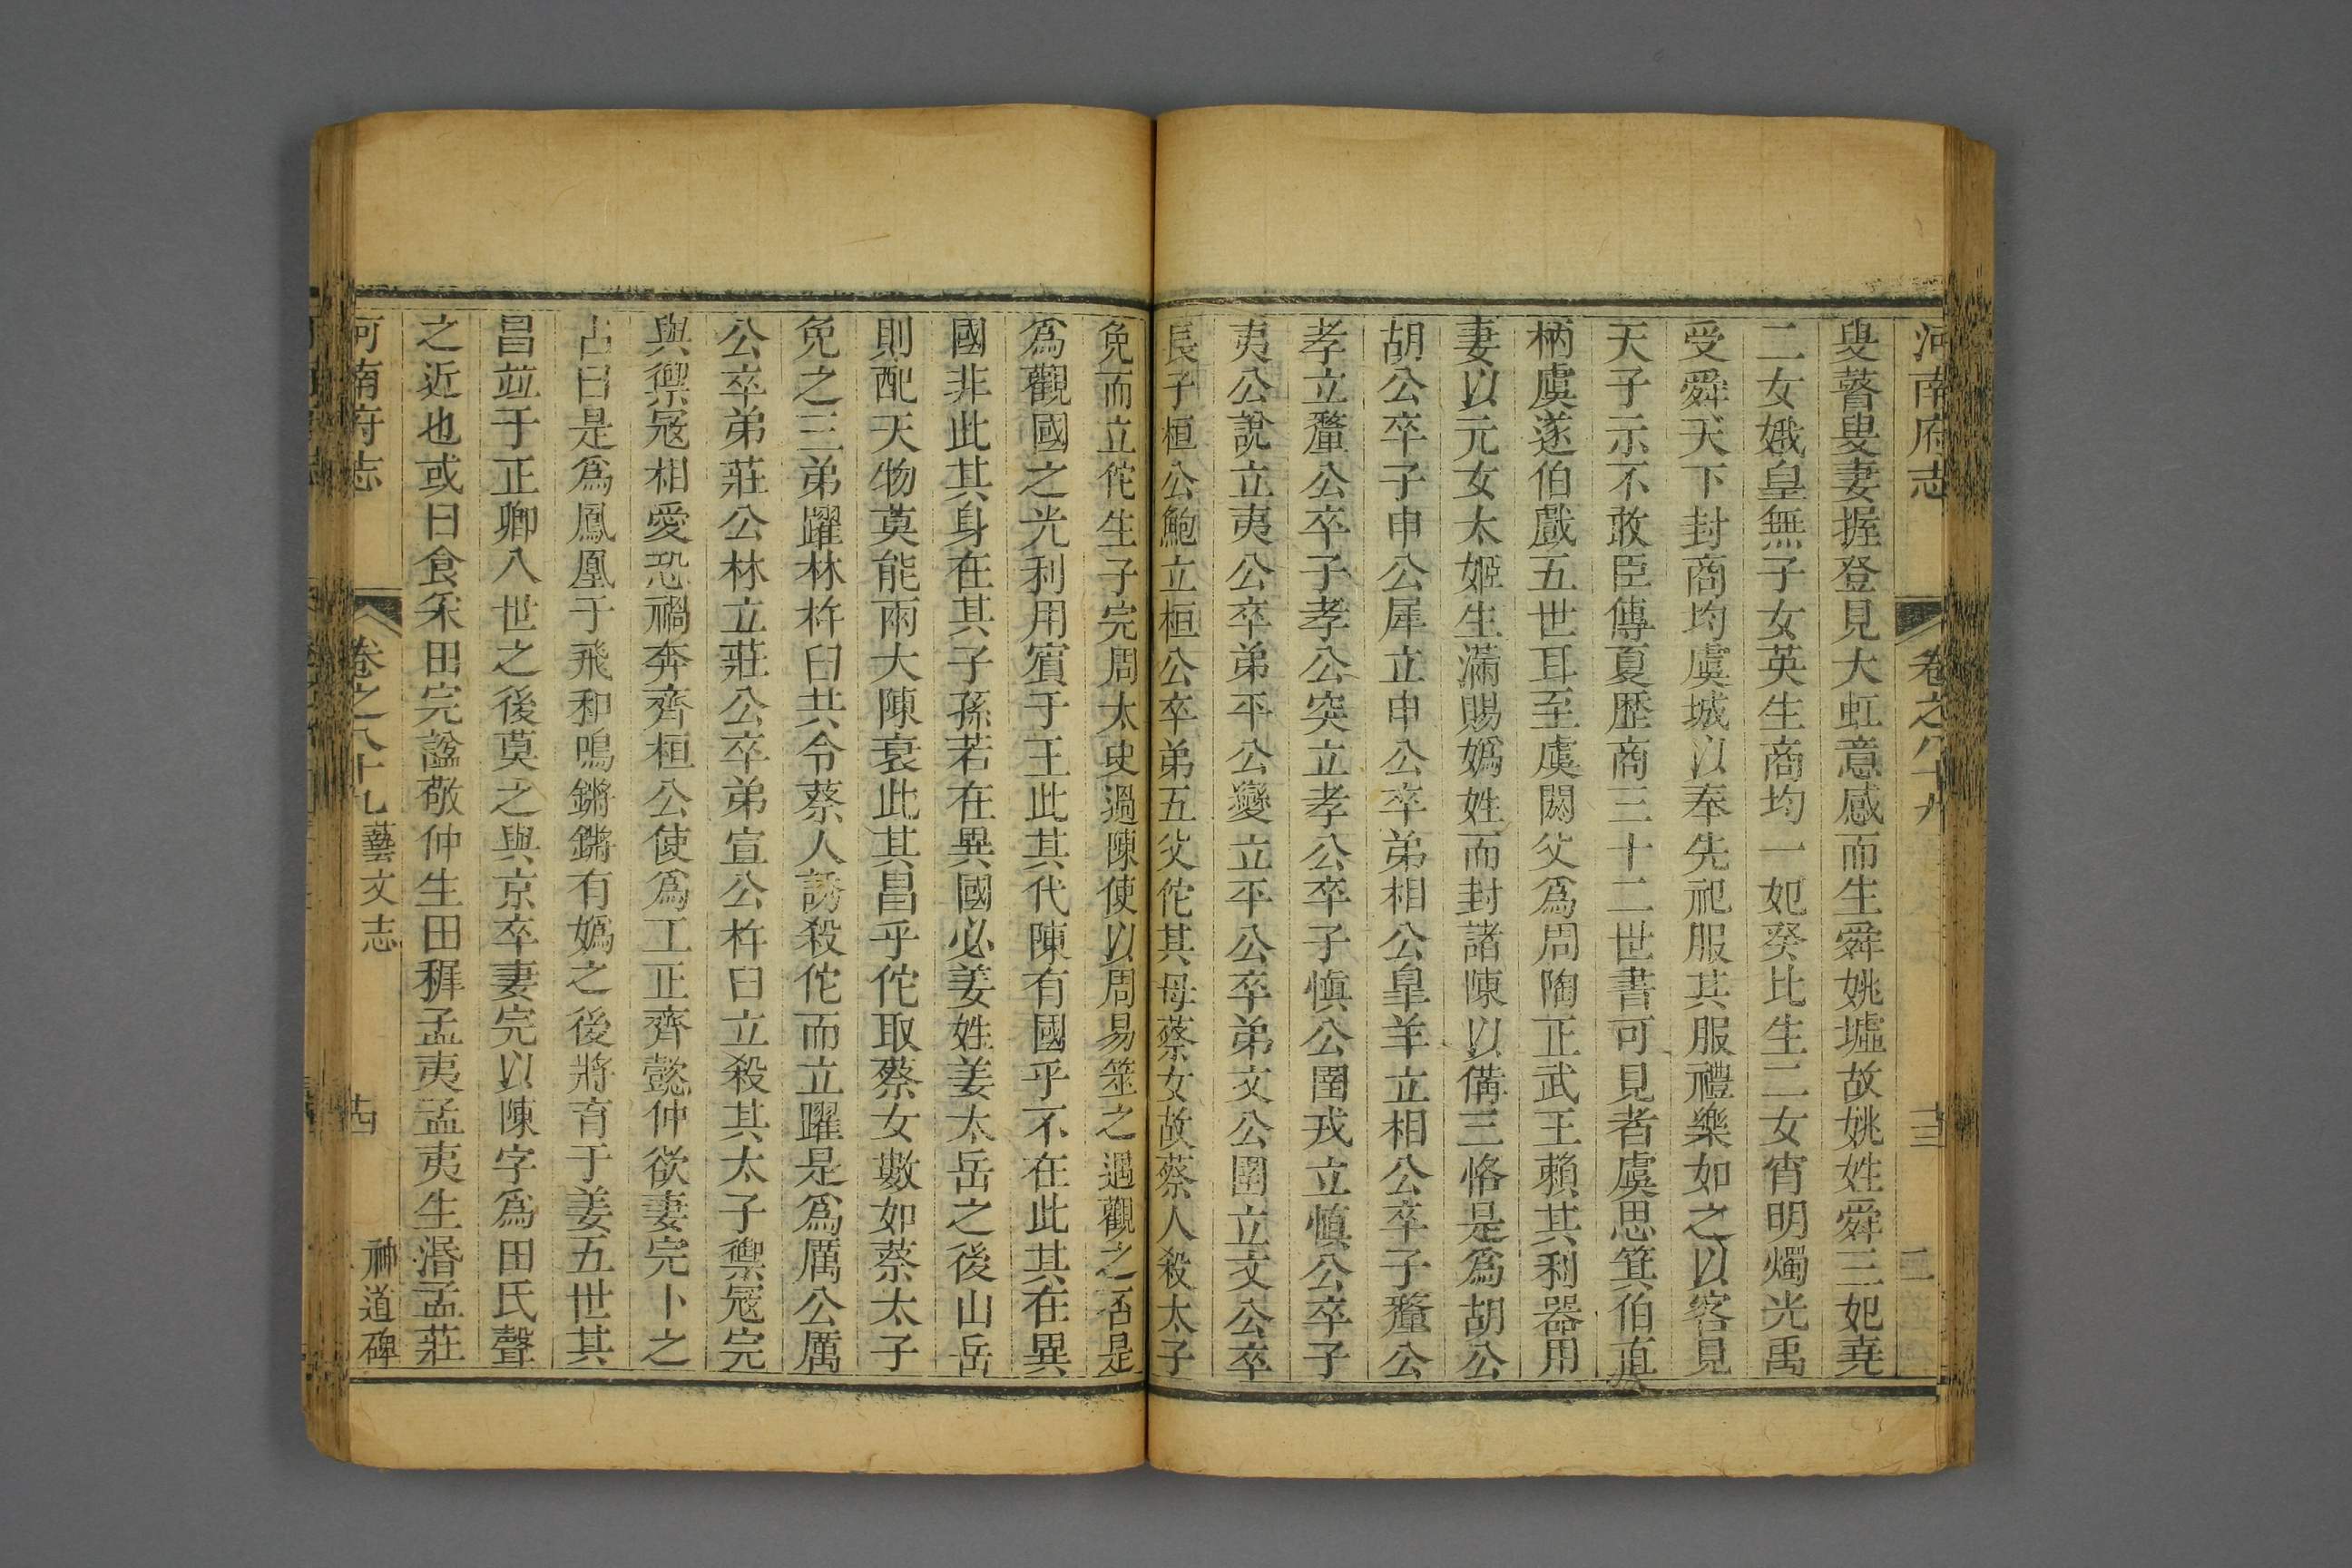 河南府志 卷之八十九 十三
叟瞽叟妻握登見大虹意感而生舜姚墟故姚姓舜三妃堯
二女娥皇無子女英生商均一妃癸比生二女宵明燭光禹
受舜天下封商均虞城以奉先祀服其服禮樂如之以客見
天子示不敢臣傳夏歷商三十二世書可見者虞思箕伯直
柄虞遂伯戲五世耳至虞閼父爲周陶正武王賴其利器用
妻以元女太姬生滿賜嬀姓而封諸陳以備三恪是爲胡公
胡公卒子申公犀立申公卒弟相公臯羊立相公卒子釐公
孝立釐公卒子孝公突立孝公卒子愼公圉戎立愼公卒子
夷公說立夷公卒弟平公夑立平公卒弟文公圉立文公卒
長子桓公鮑立桓公卒弟五父佗其母蔡女故蔡人殺太子
免而立佗生子完周太史過陳使以周易筮之遇觀之否是
爲觀國之光利用賓于王此其代陳有國乎不在此其在異
國非此其身在其子孫若在異國必姜姓姜太岳之後山岳
則配天物莫能兩大陳衰此其昌乎佗取蔡女數如蔡太子
免之三弟躍林杵臼共令蔡人誘殺佗而立躍是爲厲公厲
公卒弟莊公林立莊公卒弟宣公杵臼立殺其太子禦冦完
與禦冦相愛恐禍奔齊桓公使爲工正齊懿仲欲妻完卜之
占曰是爲鳳凰于飛和鳴鏘鏘有嬀之後將育于姜五世其
昌竝于正卿八世之後莫之與京卒妻完以陳字爲田氏聲
之近也或曰食采田完諡敬仲生田穉孟夷孟夷生湣孟莊
河南府志 卷之八十九 藝文志 十四 神道碑